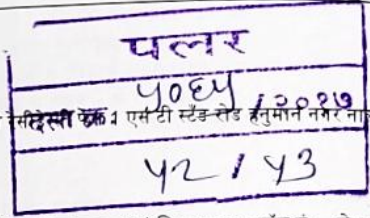 पलर
५०६५ / २०१७
एस टी स्टँड रोड हनुमान नगर
५२ / ५३